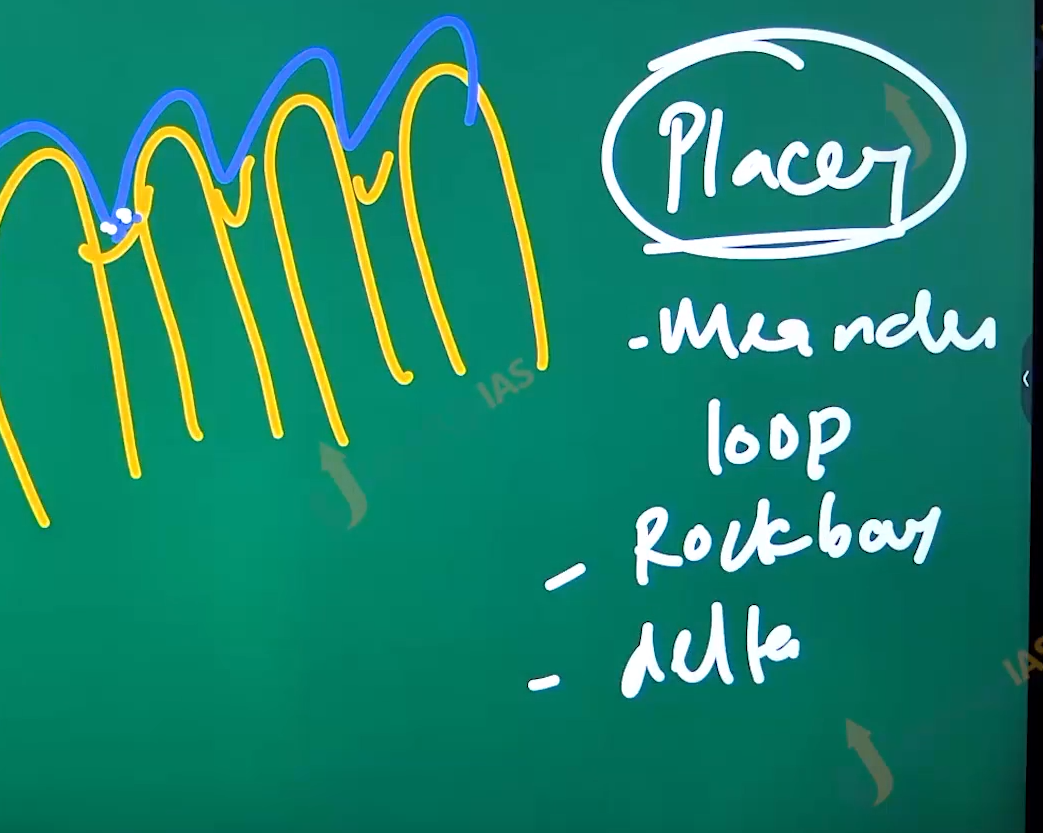 Placer
- Meander
loop
- Rockbar
- delta
IAS
IAS